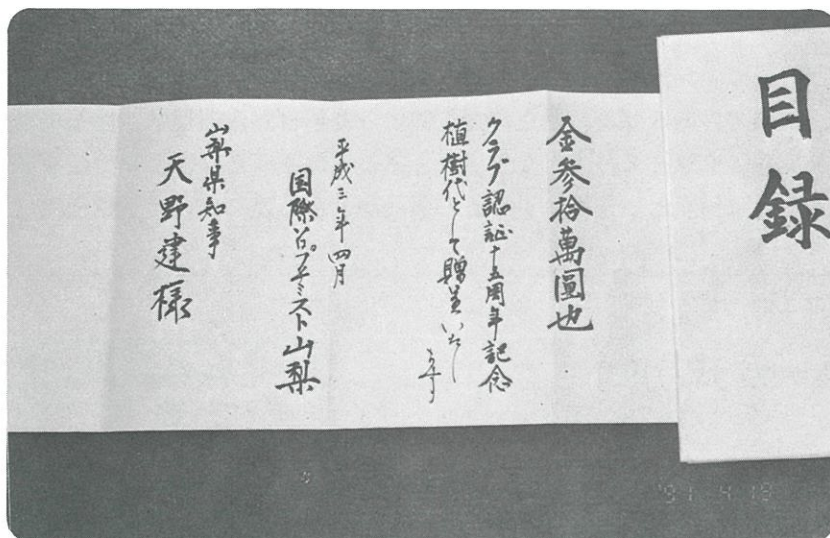 目録
金参拾萬圓也
クラブ認証十五周年記念
植樹代として贈呈いたし
ます
平成三年四月
国際ソロプチミスト山梨
山梨県知事
天野建様
'91 4 18